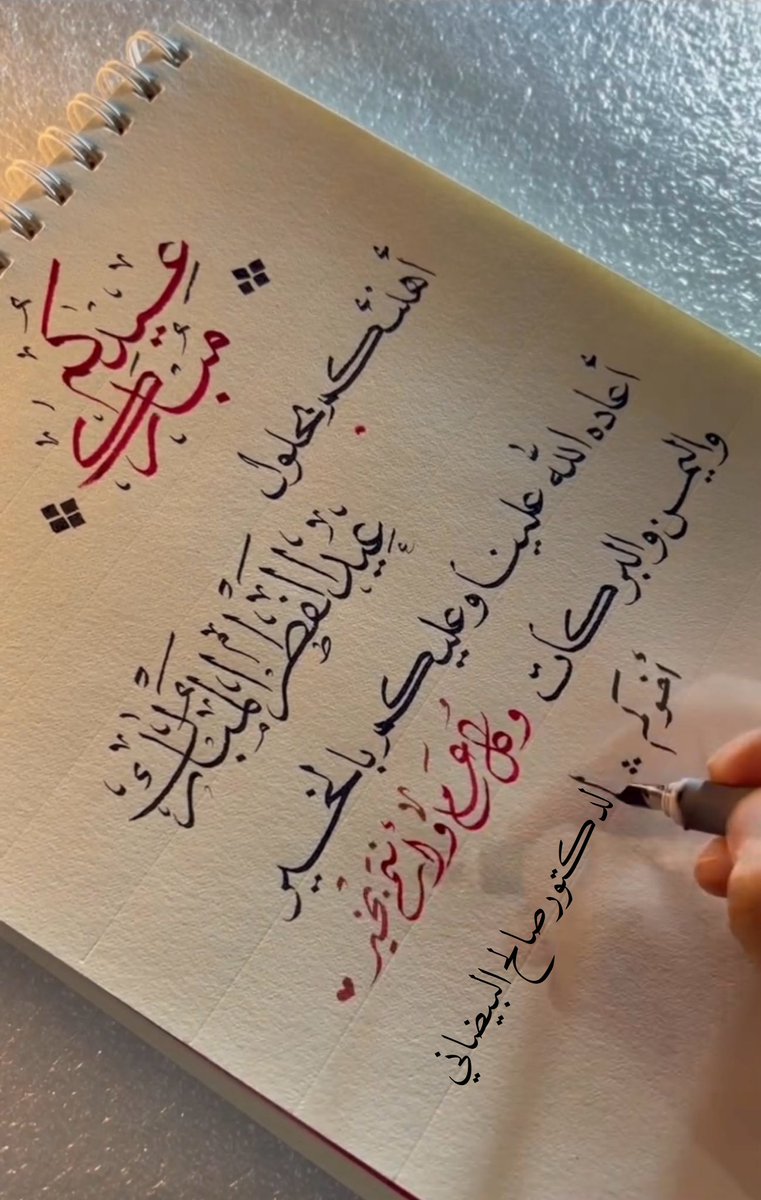 عِيدُكُم
مُبَارَكٌ
أهنئكم بحلول
عِيدِ الفِطْرِ المُبَارَكِ
أعاده الله علينا وعليكم بالخير
واليمن والبركات
وكل عام وأنتم بخير
أخوكم
الدكتور صالح البيضاني